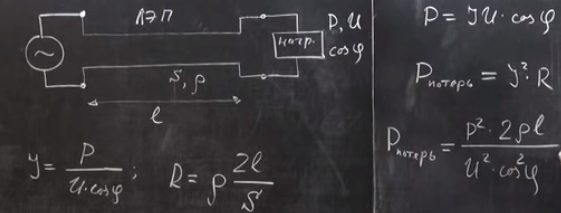 ЛЭП
P, U
нагр. cosφ
S, ρ
l
J = P / (U·cosφ) ; R = ρ 2l / S
P = JU·cosφ
Pпотерь = J²·R
Pпотерь = P²·2ρl / (U²·cos²φ)